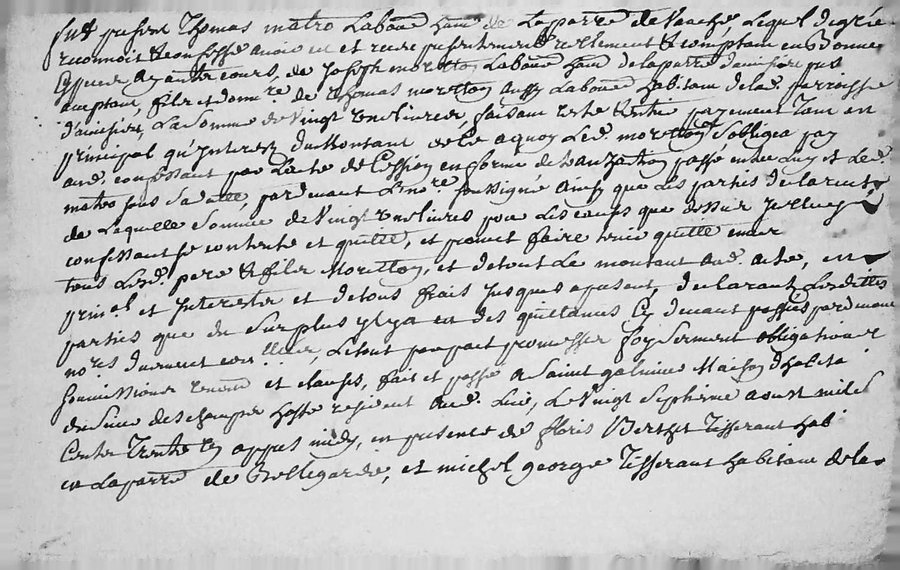 fut present Thomas matro Labour. ham. de Laparre de Veauche, Lequel degré
reconnoit & confesse avoir eu et receu presentement reellement & comptant en Bonne
Especes ayantre cours, de Joseph moretton Labour. ham. de laparre d'aveisieu pnt
acceptant, fils et donre. de Thomas moretton aussy Labour. habitant de lad. parroisse
d'aveisieu, La somme de Vingt livres, faisant reste & entier payement tant en
principal qu'Interest du montant de la a quoy Led. moretton s'obligea pay
aud. confessant par Lacte de Cession en forme de passé entre Luy et Led.
matro sous sa datte, pardevant Le nore. soussigné ainsy que Les parties declarent
de Laquelle Somme de Vingt livres pour Les causes que dessus
confessant se contente et quitte, et promet faire tenir quitte envers
tous Lesd. pere & fils Moretton, et de tout Le montant aud. acte, en
prinal et Interests et de tous frais Jusques apresent, declarant Lesdittes
parties que du Surplus Il y a eu des quittances Cy devant passées pardevant
nores. duement controllées, Le tout par pact promesses foy Serment obligations
soumissions renon. et clauses, fait et passé a Saint galmier Maison d'habita.
du sieur deschamps hoste resident aud. Lieu, Le Vingt Septieme aoust mil sept
Cents Trente apprès midy, en presence de floris Berthet Tisserant hab.
en Laparre de Bellegarde, et michel george Tisserant habitant de la